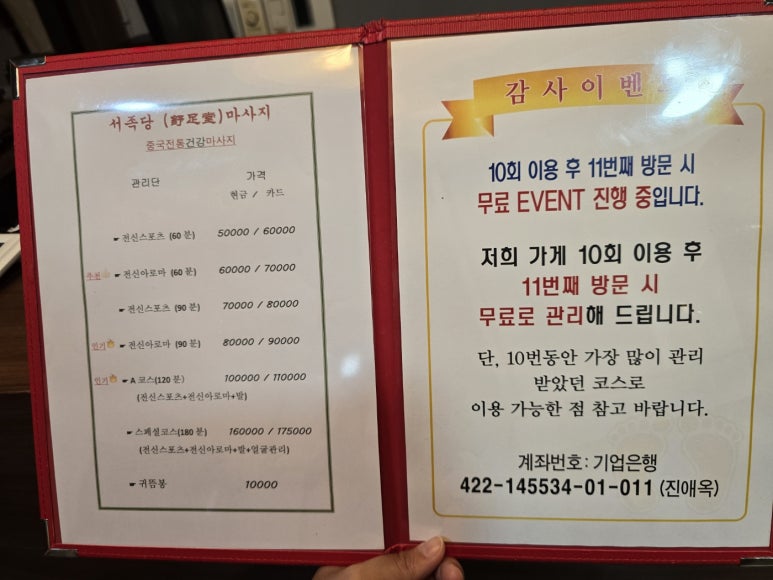 서족당 (舒足堂)마사지
중국전통건강마사지
관리단 가격
현금 / 카드
☛ 전신스포츠 (60 분) 50000 / 60000
추천 ☛ 전신아로마 (60 분) 60000 / 70000
☛ 전신스포츠 (90 분) 70000 / 80000
인기 ☛ 전신아로마 (90 분) 80000 / 90000
인기 ☛ A 코스(120 분) 100000 / 110000
(전신스포츠+전신아로마+발)
☛ 스페셜코스(180 분) 160000 / 175000
(전신스포츠+전신아로마+발+얼굴관리)
☛ 귀뜸봉 10000
감사이벤
10회 이용 후 11번째 방문 시
무료 EVENT 진행 중입니다.
저희 가게 10회 이용 후
11번째 방문 시
무료로 관리해 드립니다.
단, 10번동안 가장 많이 관리
받았던 코스로
이용 가능한 점 참고 바랍니다.
계좌번호 : 기업은행
422-145534-01-011 (진애옥)